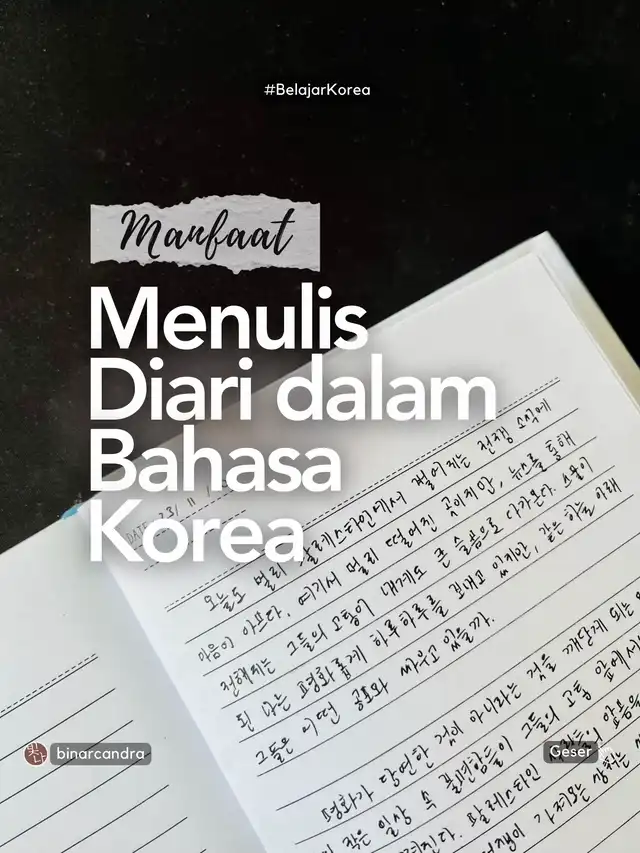 #BelajarKorea
Manfaat
Menulis
Diari dalam
Bahasa
Korea
DATE 23/11/
오늘도 멀리 팔레스타인에서 벌어지는 전쟁 소식에
마음이 아프다. 여기서 멀리 떨어진 곳이지만, 뉴스를 통해
전해지는 그들의 고통이 내게도 큰 슬픔으로 다가온다. 스물이
된 나는 평화롭게 하루하루를 보내고 있지만, 같은 하늘 아래
그들은 어떤 공포와 싸우고 있을까.
평화가 당연한 것이 아니라는 것을 깨닫게 되는
작은 일상 속 불편함들이 그들의 고통 앞에서
팔레스타인 아픔을
가져오는 상처는
빛나
binarcandra
Geser